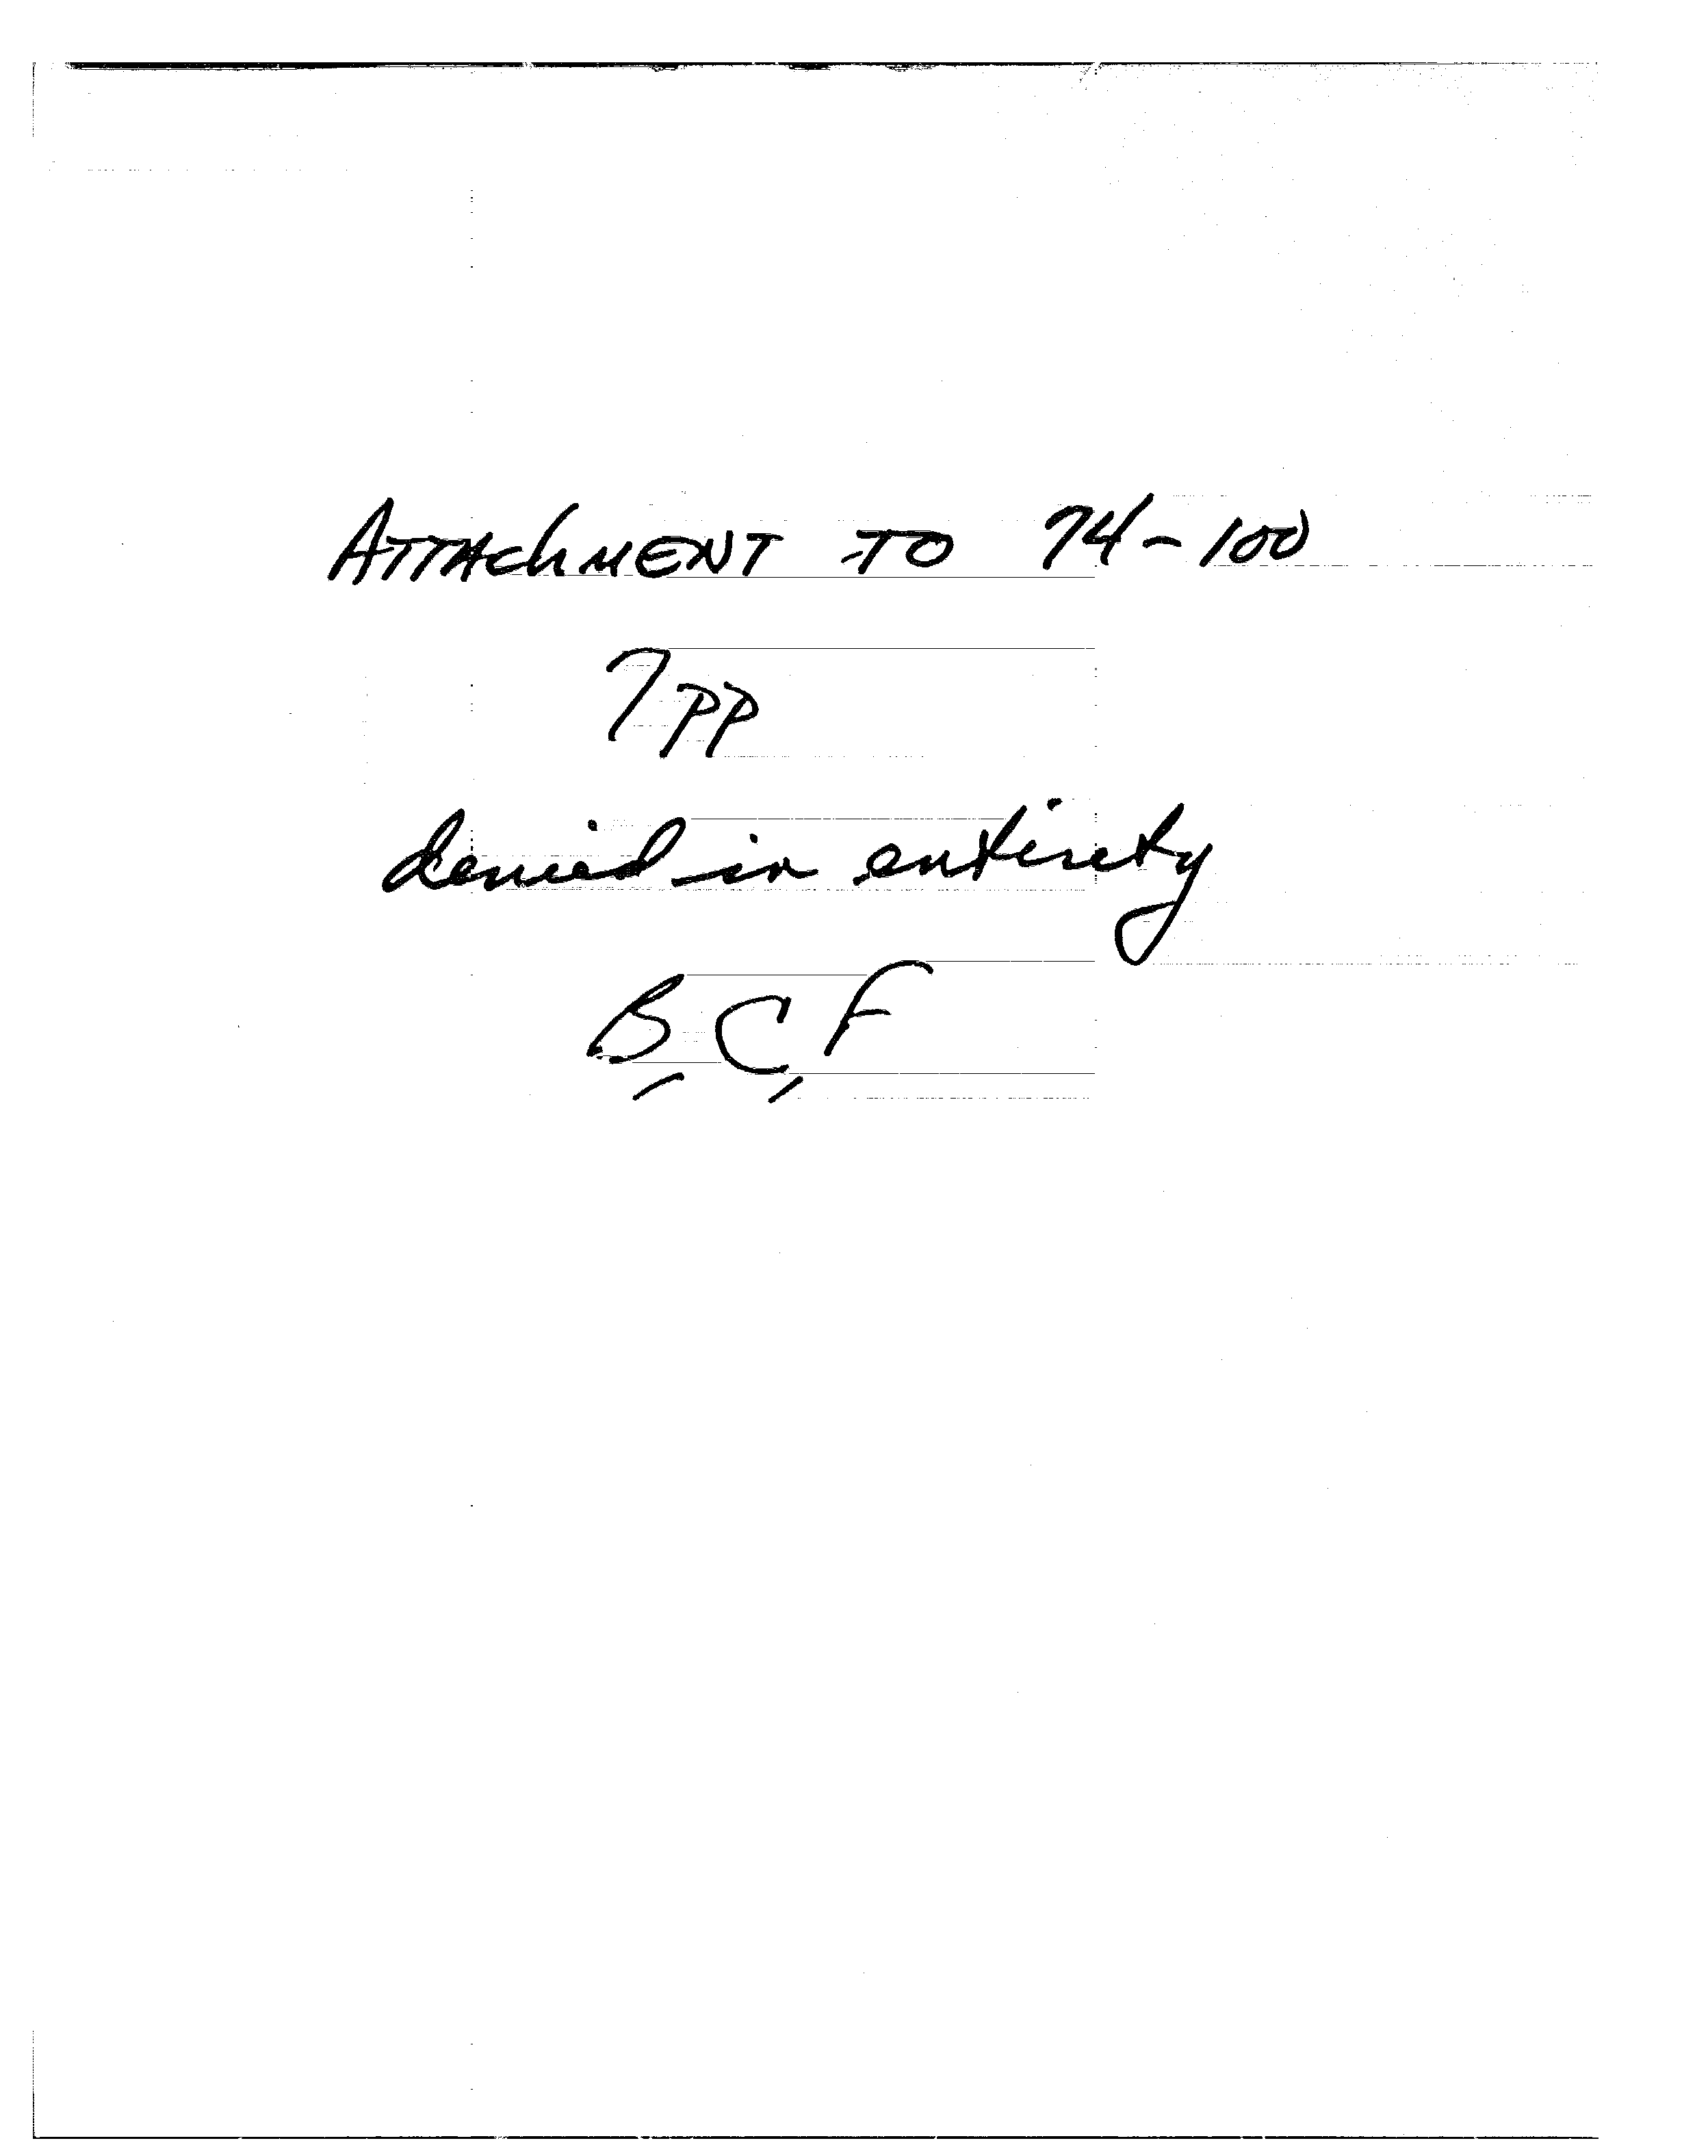 ATTAchMENT TO 74-100
7pp
denied in entirety
B, C, F